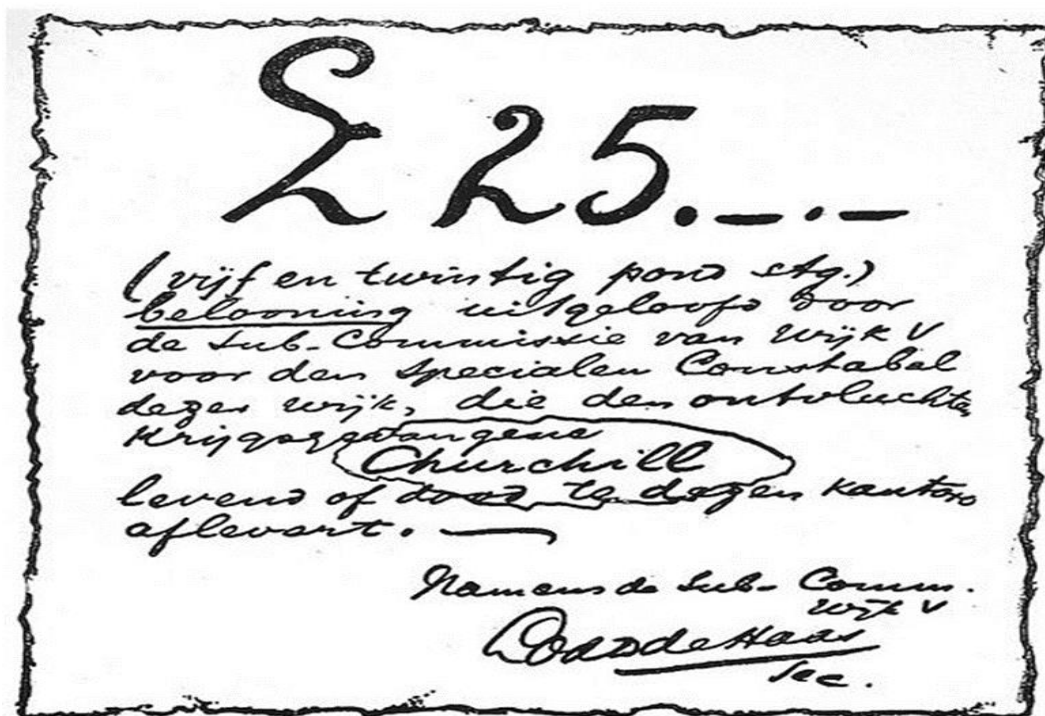 £ 25.-.-
(vijf en twintig pond stg.)
belooning uitgeloofd door
de Sub-Commissie van Wijk V
voor den specialen Constabel
dezer wijk, die den ontvluchten
Krijgsgevangene
Churchill
levend of dood te dezen kantore
aflevert.
Namens de Sub-Comm.
Wijk V
de Haas
Sec.